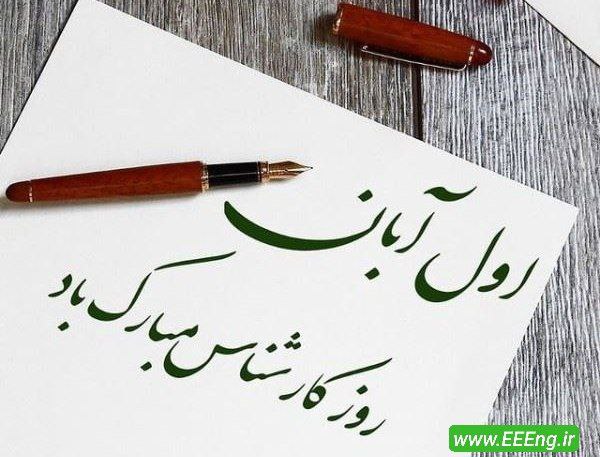 اول آبان
روز کارشناس مبارک باد
www.EEEng.ir